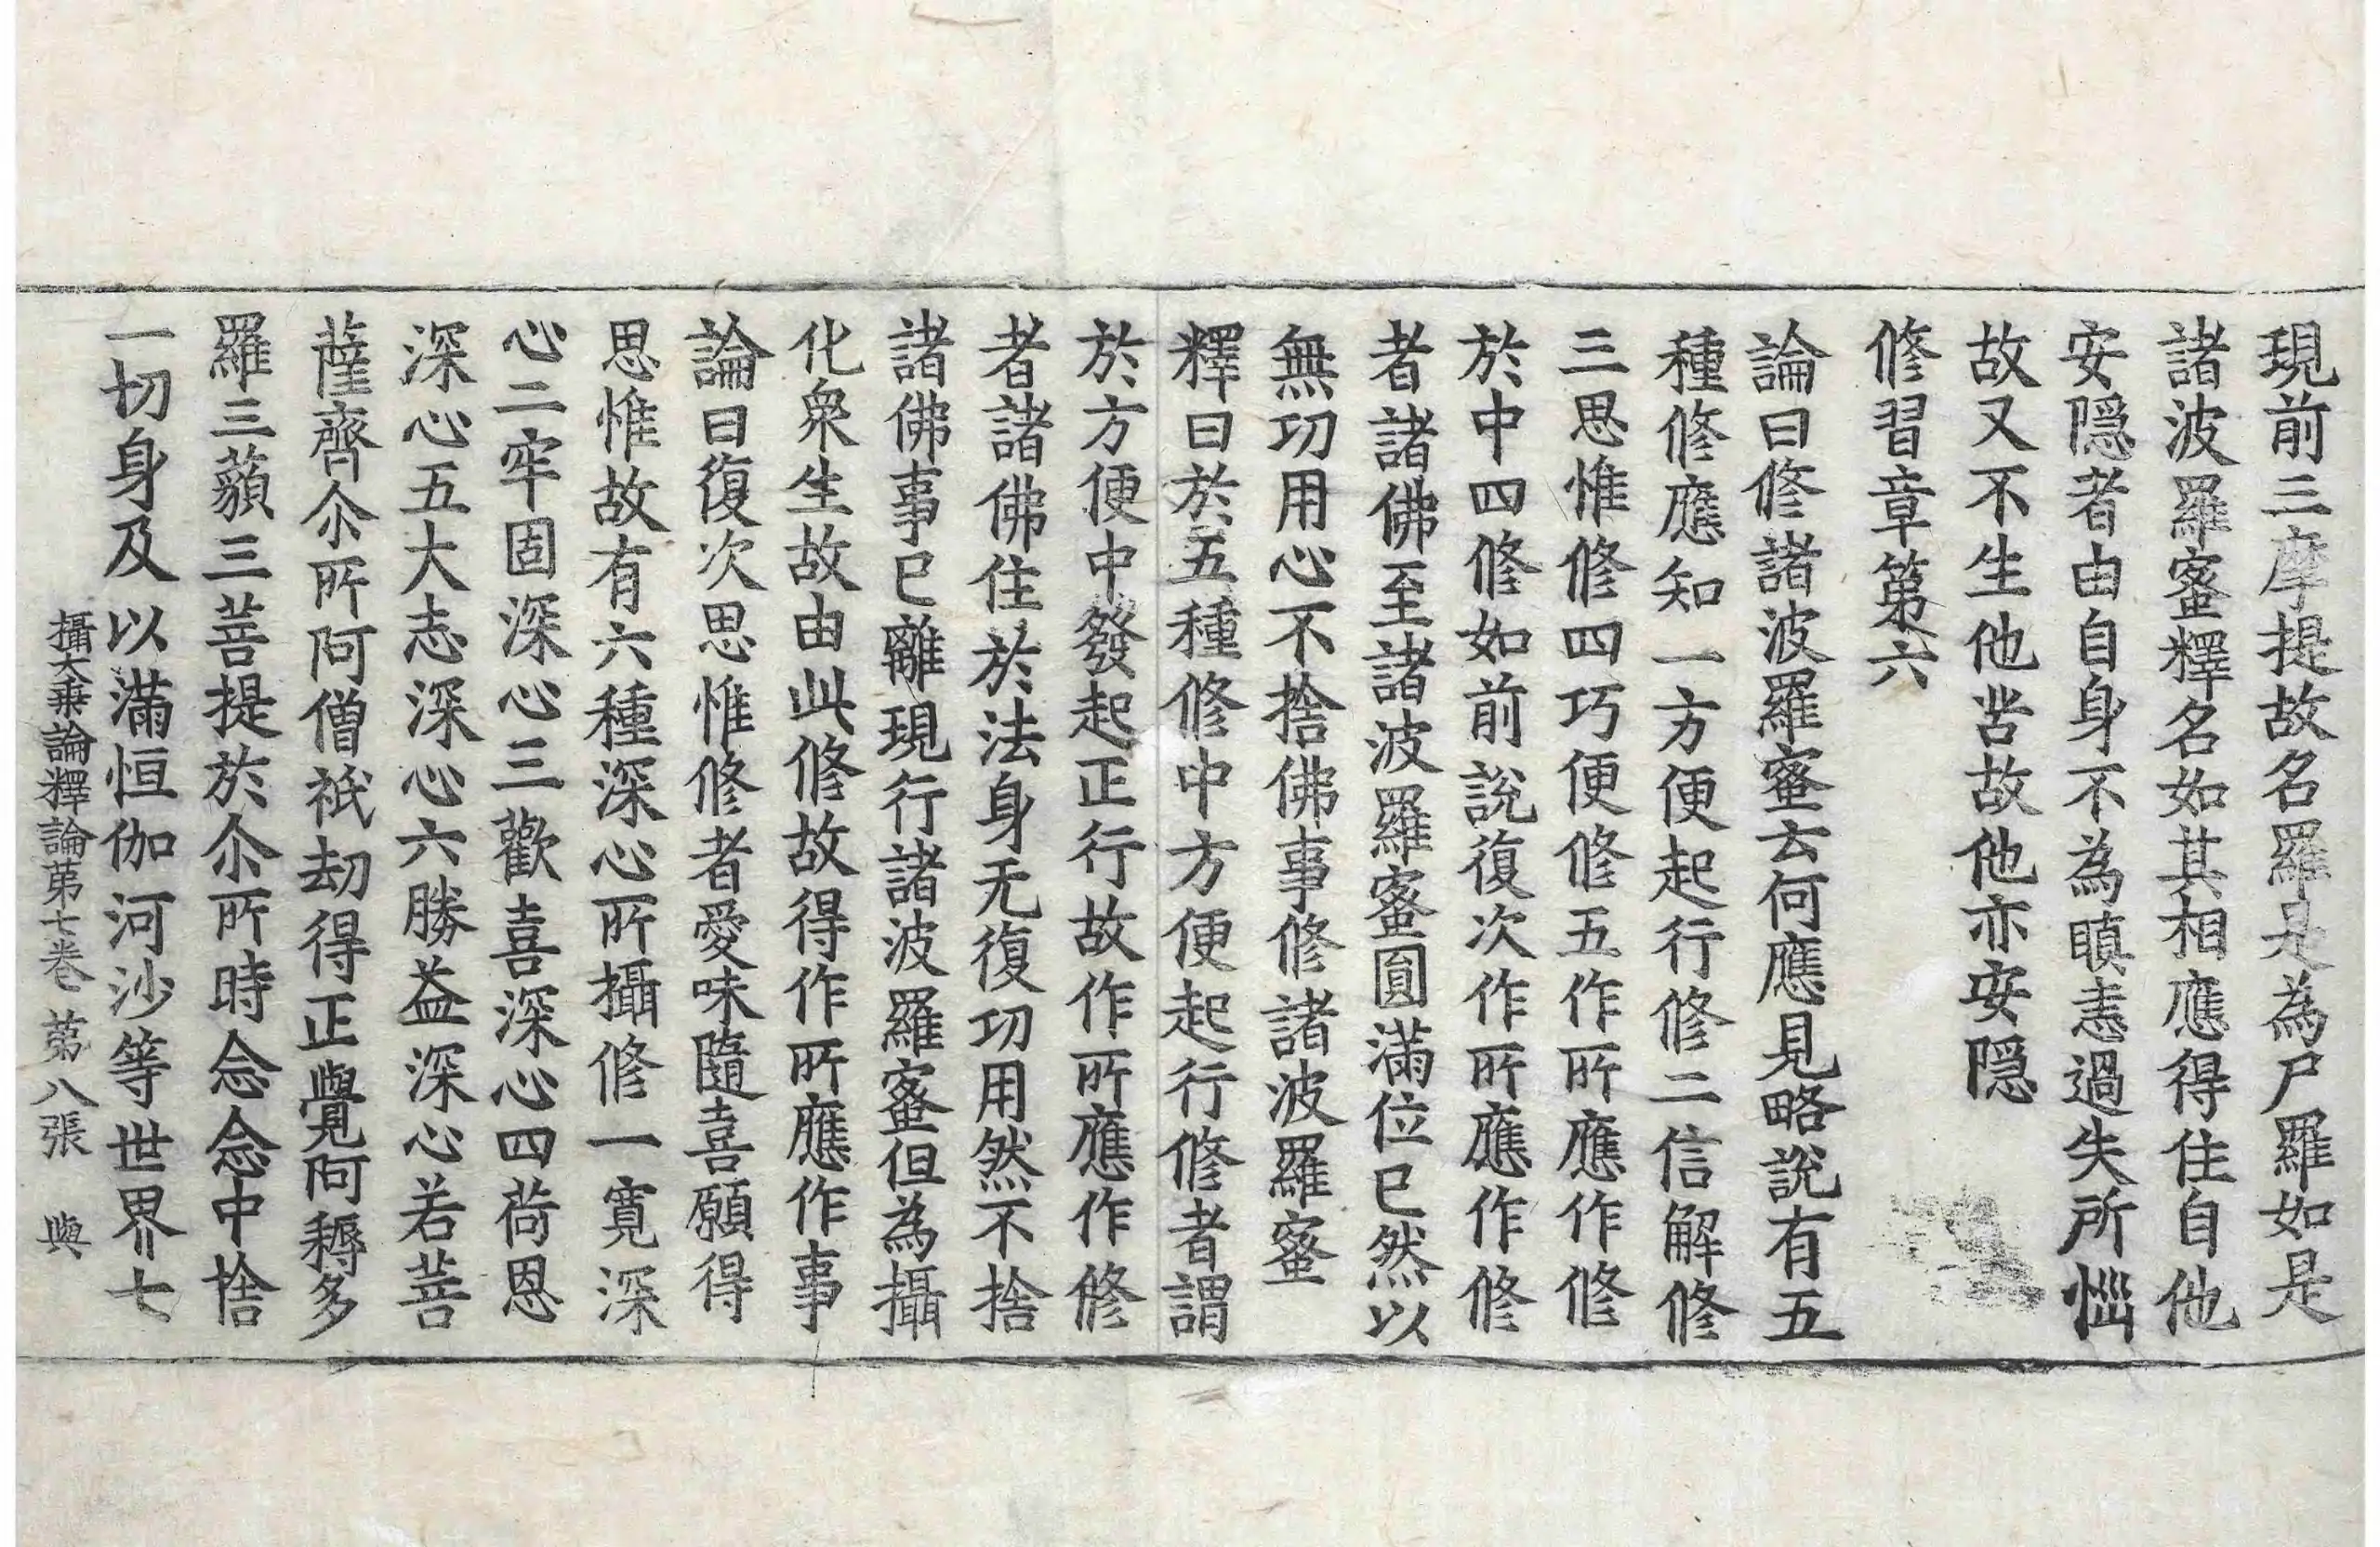 現前三摩提故名羅是為尸羅如是
諸波羅蜜釋名如其相應得住自他
安隱者由自身不為瞋恚過失所惱
故又不生他苦故他亦安隱
修習章第六
論曰修諸波羅蜜云何應見略說有五
種修應知一方便起行修二信解修
三思惟修四巧便修五作所應作修
於中四修如前說復次作所應作修
者諸佛至諸波羅蜜圓滿位已然以
無功用心不捨佛事修諸波羅蜜
釋曰於五種修中方便起行修者謂
於方便中發起正行故作所應作修
者諸佛住於法身无復功用然不捨
諸佛事已離現行諸波羅蜜但為攝
化衆生故由此修故得作所應作事
論曰復次思惟修者愛味隨喜願得
思惟故有六種深心所攝修一寬深
心二牢固深心三歡喜深心四荷恩
深心五大志深心六勝益深心若菩
薩齊尒所阿僧祇劫得正覺阿耨多
羅三藐三菩提於尒所時念念中捨
一切身及以滿恒伽河沙等世界七
攝大乘論釋論第七卷 第八張 與